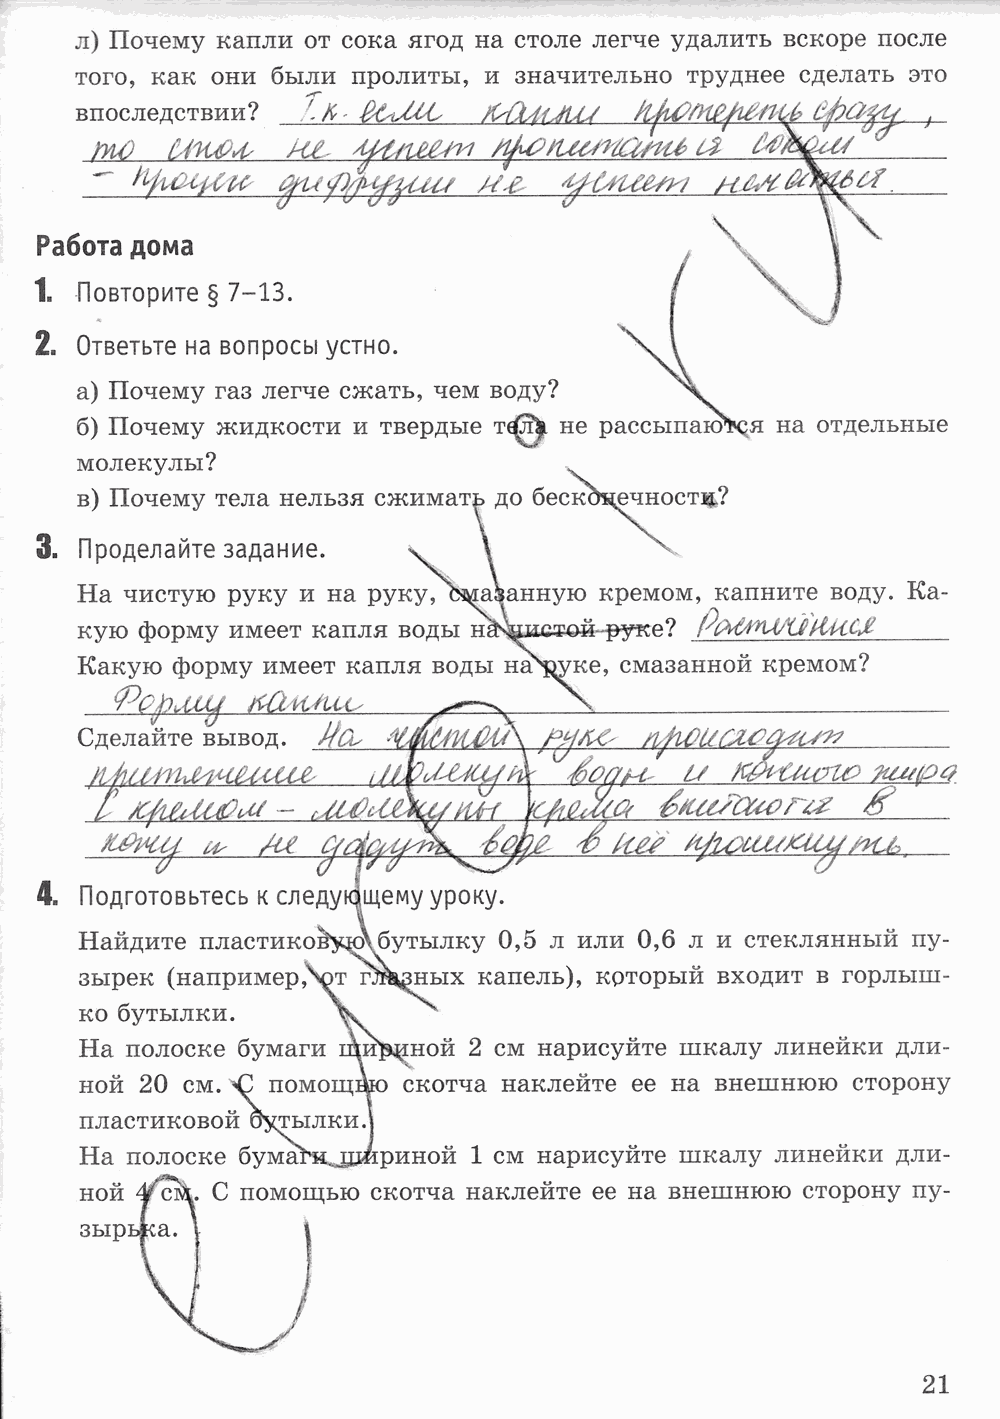 л) Почему капли от сока ягод на столе легче удалить вскоре после
того, как они были пролиты, и значительно труднее сделать это
впоследствии? Т.к. если капли протереть сразу,
то стол не успеет пропитаться соком
- процесс диффузии не успеет начаться.
Работа дома
1. Повторите § 7–13.
2. Ответьте на вопросы устно.
а) Почему газ легче сжать, чем воду?
б) Почему жидкости и твердые тела не рассыпаются на отдельные
молекулы?
в) Почему тела нельзя сжимать до бесконечности?
3. Проделайте задание.
На чистую руку и на руку, смазанную кремом, капните воду. Ка-
кую форму имеет капля воды на чистой руке?
Какую форму имеет капля воды на руке, смазанной кремом?
Форму капли
Сделайте вывод. На чистой руке происходит
притяжение молекул воды и кожного жира.
С кремом - молекулы крема впитаются в
кожу и не дадут воде в неё проникнуть.
4. Подготовьтесь к следующему уроку.
Найдите пластиковую бутылку 0,5 л или 0,6 л и стеклянный пу-
зырек (например, от глазных капель), который входит в горлыш-
ко бутылки.
На полоске бумаги шириной 2 см нарисуйте шкалу линейки дли-
ной 20 см. С помощью скотча наклейте ее на внешнюю сторону
пластиковой бутылки.
На полоске бумаги шириной 1 см нарисуйте шкалу линейки дли-
ной 4 см. С помощью скотча наклейте ее на внешнюю сторону пу-
зырька.
21